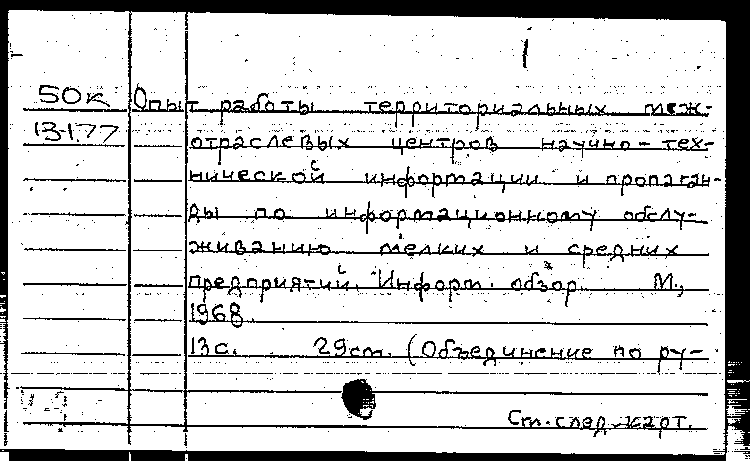 50к Опыт работы территориальных меж-
13177 отраслевых центров научно-тех-
нической информации и пропаган-
ды по информационному обслу-
живанию мелких и средних
предприятий. Информ. обзор М.,
1968.
13с. 29см. (Объединение по ру-
См. след. карт.